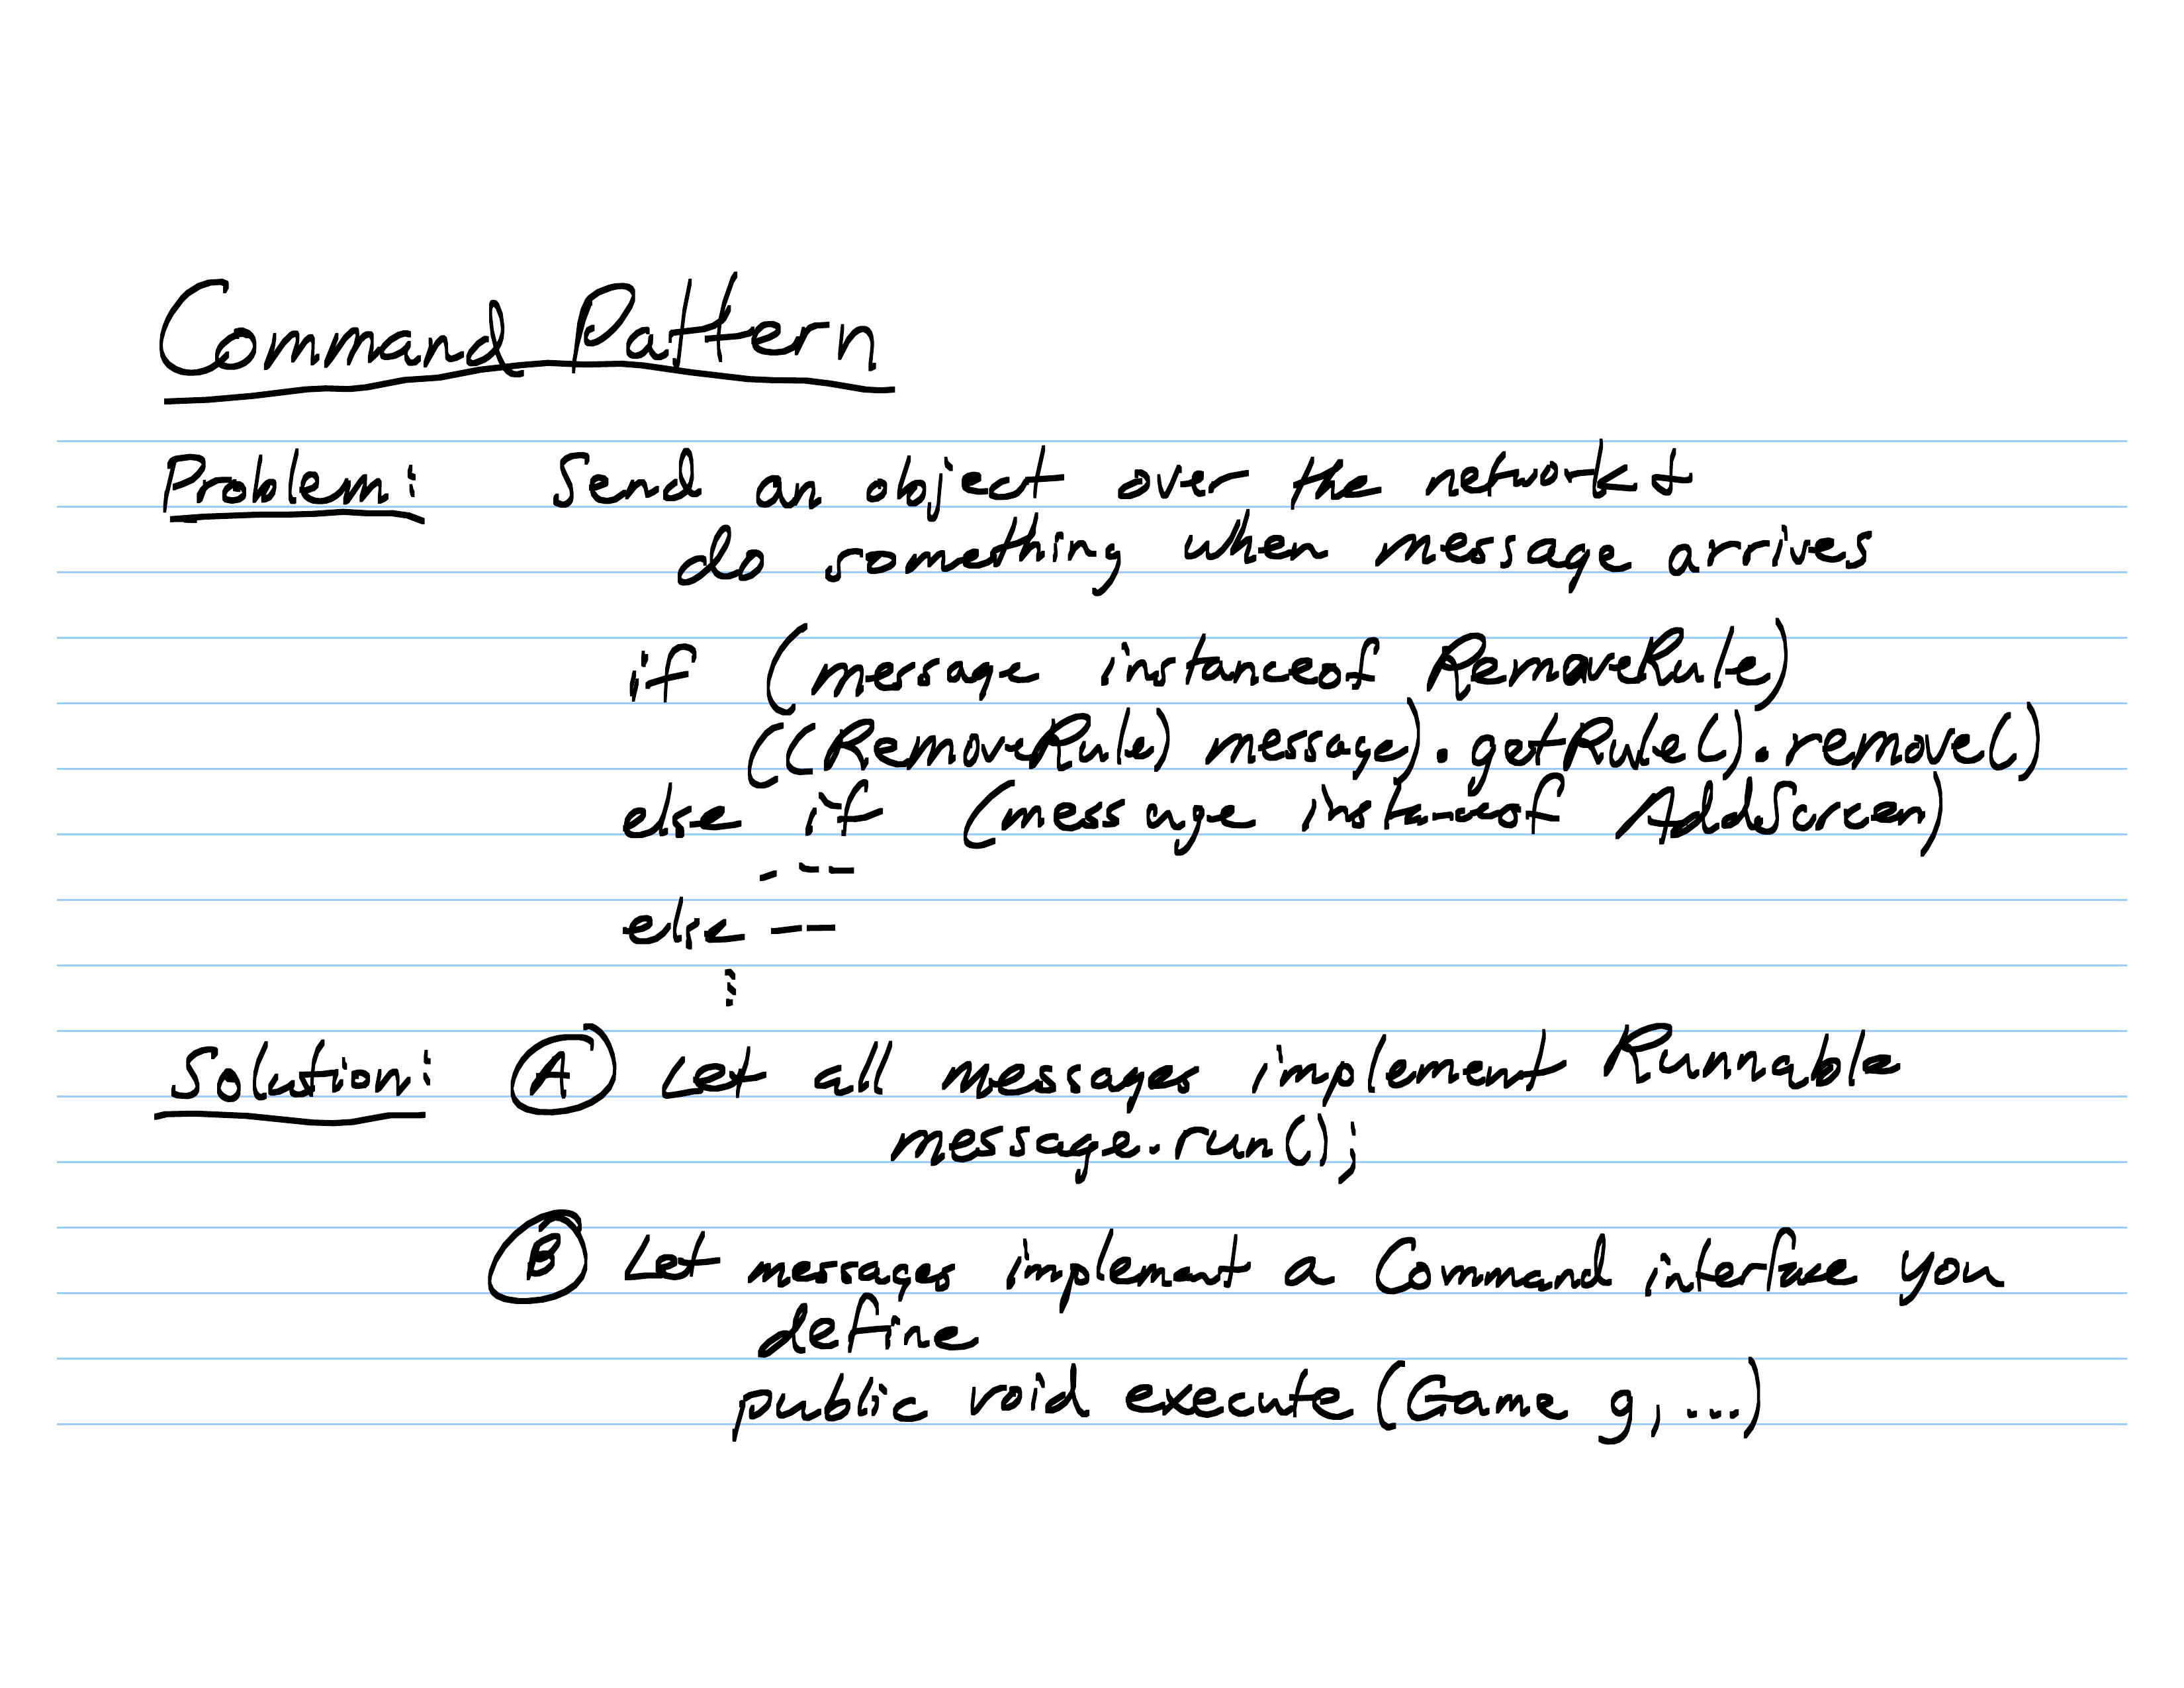 Command Pattern
Problem: Send an object over the network &
do something when message arrives
if (message instanceof RemoveRule)
((RemoveRule) message).getRule().remove()
else if (message instanceof AddScreen)
. ---
else ---
⋮
Solution: A Let all messages implement Runnable
message.run();
B Let messages implement a Command interface you
define
public void execute (Game g, ...)